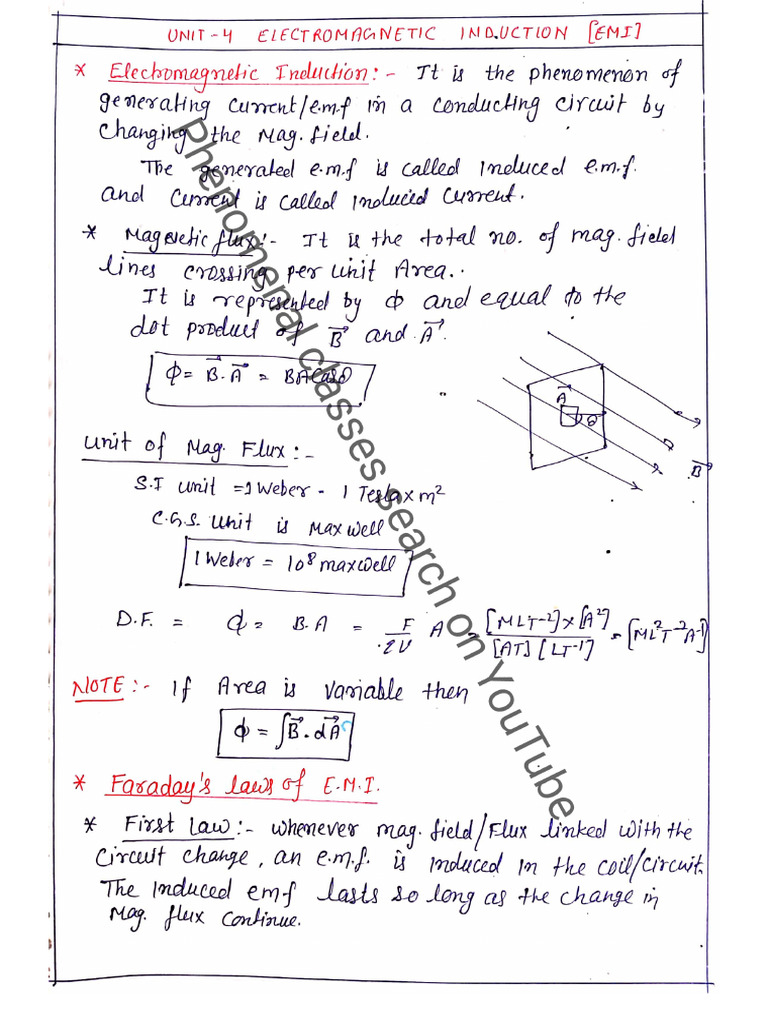 UNIT-4 ELECTROMAGNETIC INDUCTION [EMI]
* Electromagnetic Induction:- It is the phenomenon of
generating current/e.m.f in a conducting circuit by
changing the Mag. field.
The generated e.m.f is called induced e.m.f.
and current is called induced current.
* Magnetic flux:- It is the total no. of mag. field
lines crossing per unit Area..
It is represented by ϕ and equal to the
dot product of B⃗ and A⃗.
ϕ = B⃗.A⃗ = BA cosθ
A⃗
θ
B⃗
Unit of Mag. Flux:-
S.I unit = 1 Weber - 1 Tesla x m²
C.G.S. unit is Maxwell
1 Weber = 10⁸ maxwell
D.F. = ϕ = B.A = F/qV A = [MLT⁻²]x[A²]/[AT][LT⁻¹] = [ML²T⁻²A⁻¹]
NOTE:- If Area is variable then
ϕ = ∫B⃗.dA⃗
* Faraday's laws of E.M.I.
* First law:- whenever mag. field/Flux linked with the
circuit change, an e.m.f. is induced in the coil/circuit.
The induced emf lasts so long as the change in
Mag. flux continue.
Phenomenal classes search on YouTube